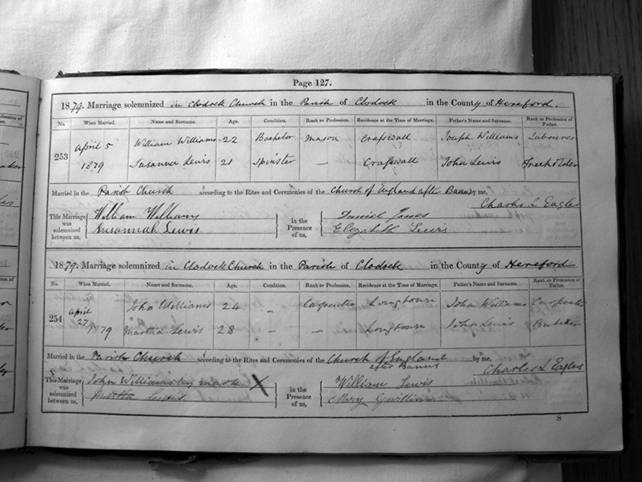 Page 127.
1879. Marriage solemnized in Clodock Church in the Parish of Clodock in the County of Hereford.
No. When Married. Name and Surname. Age. Condition. Rank or Profession. Residence at the Time of Marriage. Father's Name and Surname. Rank or Profession of Father.
253 April 5 William Williams 22 Bachelor Mason Crasswall Joseph Williams Labourer
1879 Susanna Lewis 21 Spinster — Crasswall John Lewis Freeholder
Married in the Parish Church according to the Rites and Ceremonies of the Church of England after Banns by me,
Charles L Eagles
This Marriage was solemnized between us, William Williams in the Presence of us, Daniel Jones
Susannah Lewis Elizabeth Lewis
1879. Marriage solemnized in Clodock Church in the Parish of Clodock in the County of Hereford
No. When Married. Name and Surname. Age. Condition. Rank or Profession. Residence at the Time of Marriage. Father's Name and Surname. Rank or Profession of Father.
254 April 27 John Williams 24 - Carpenter Longhouse John Williams Carpenter
1879 Martha Lewis 28 - — Longhouse John Lewis
Married in the Parish Church according to the Rites and Ceremonies of the Church of England after Banns by me,
Charles L Eagles
This Marriage was solemnized between us, John Williams his mark X in the Presence of us, William Lewis
Martha Lewis Mary Gwilliam
S